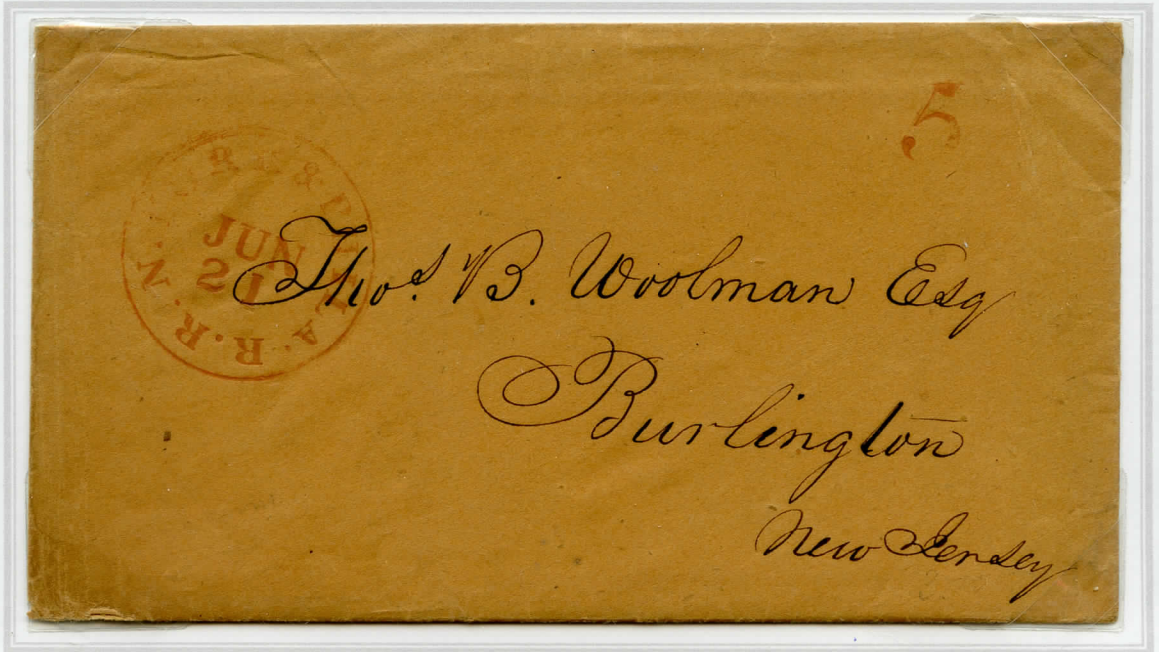 5
N. YORK & PHILA. R. R.
JUN
21
Thos. B. Woolman Esq
Burlington
New Jersey